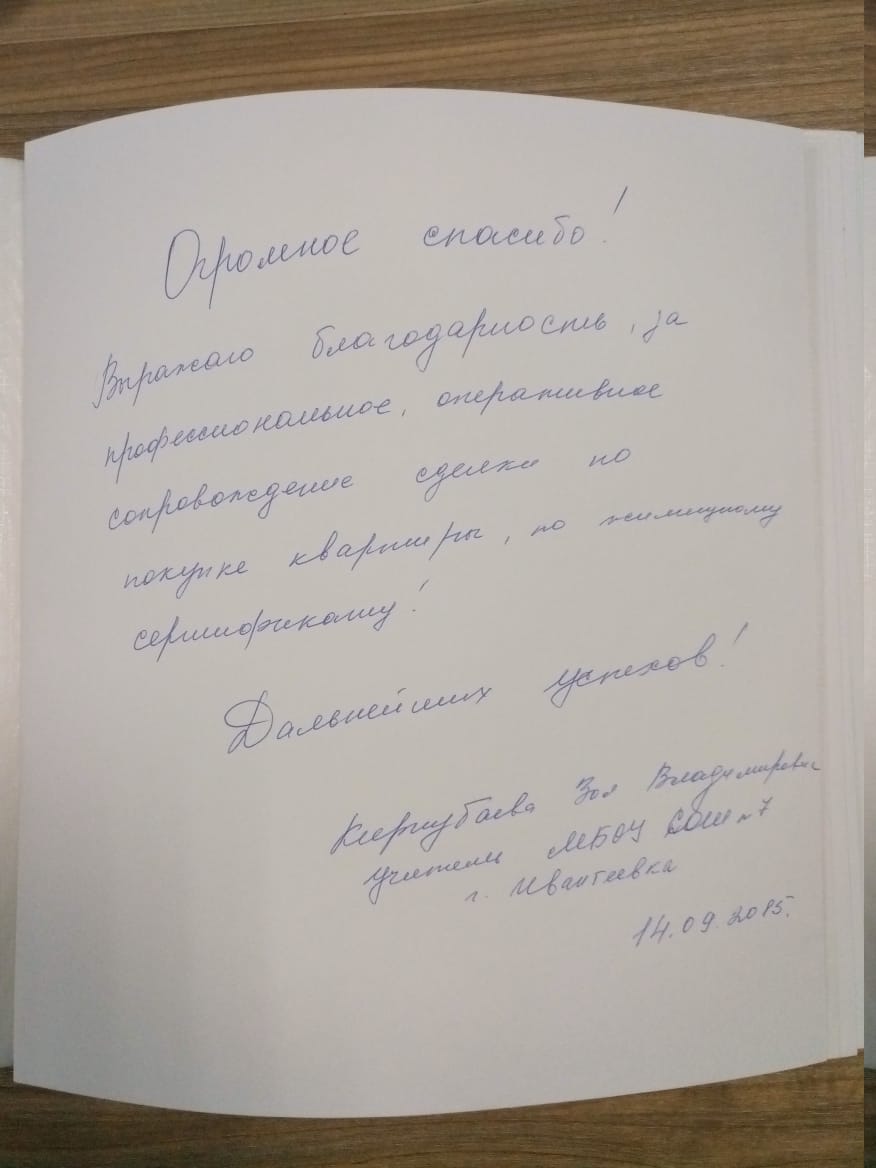 Огромное спасибо!
Выражаю благодарность, за
профессиональное, оперативное
сопровождение сделки по
покупке квартиры, по жилищному
сертификату!
Дальнейших успехов!
Зоя Владимировна
учитель МБОУ СОШ №7
г. Ивантеевка
14.09.2015.